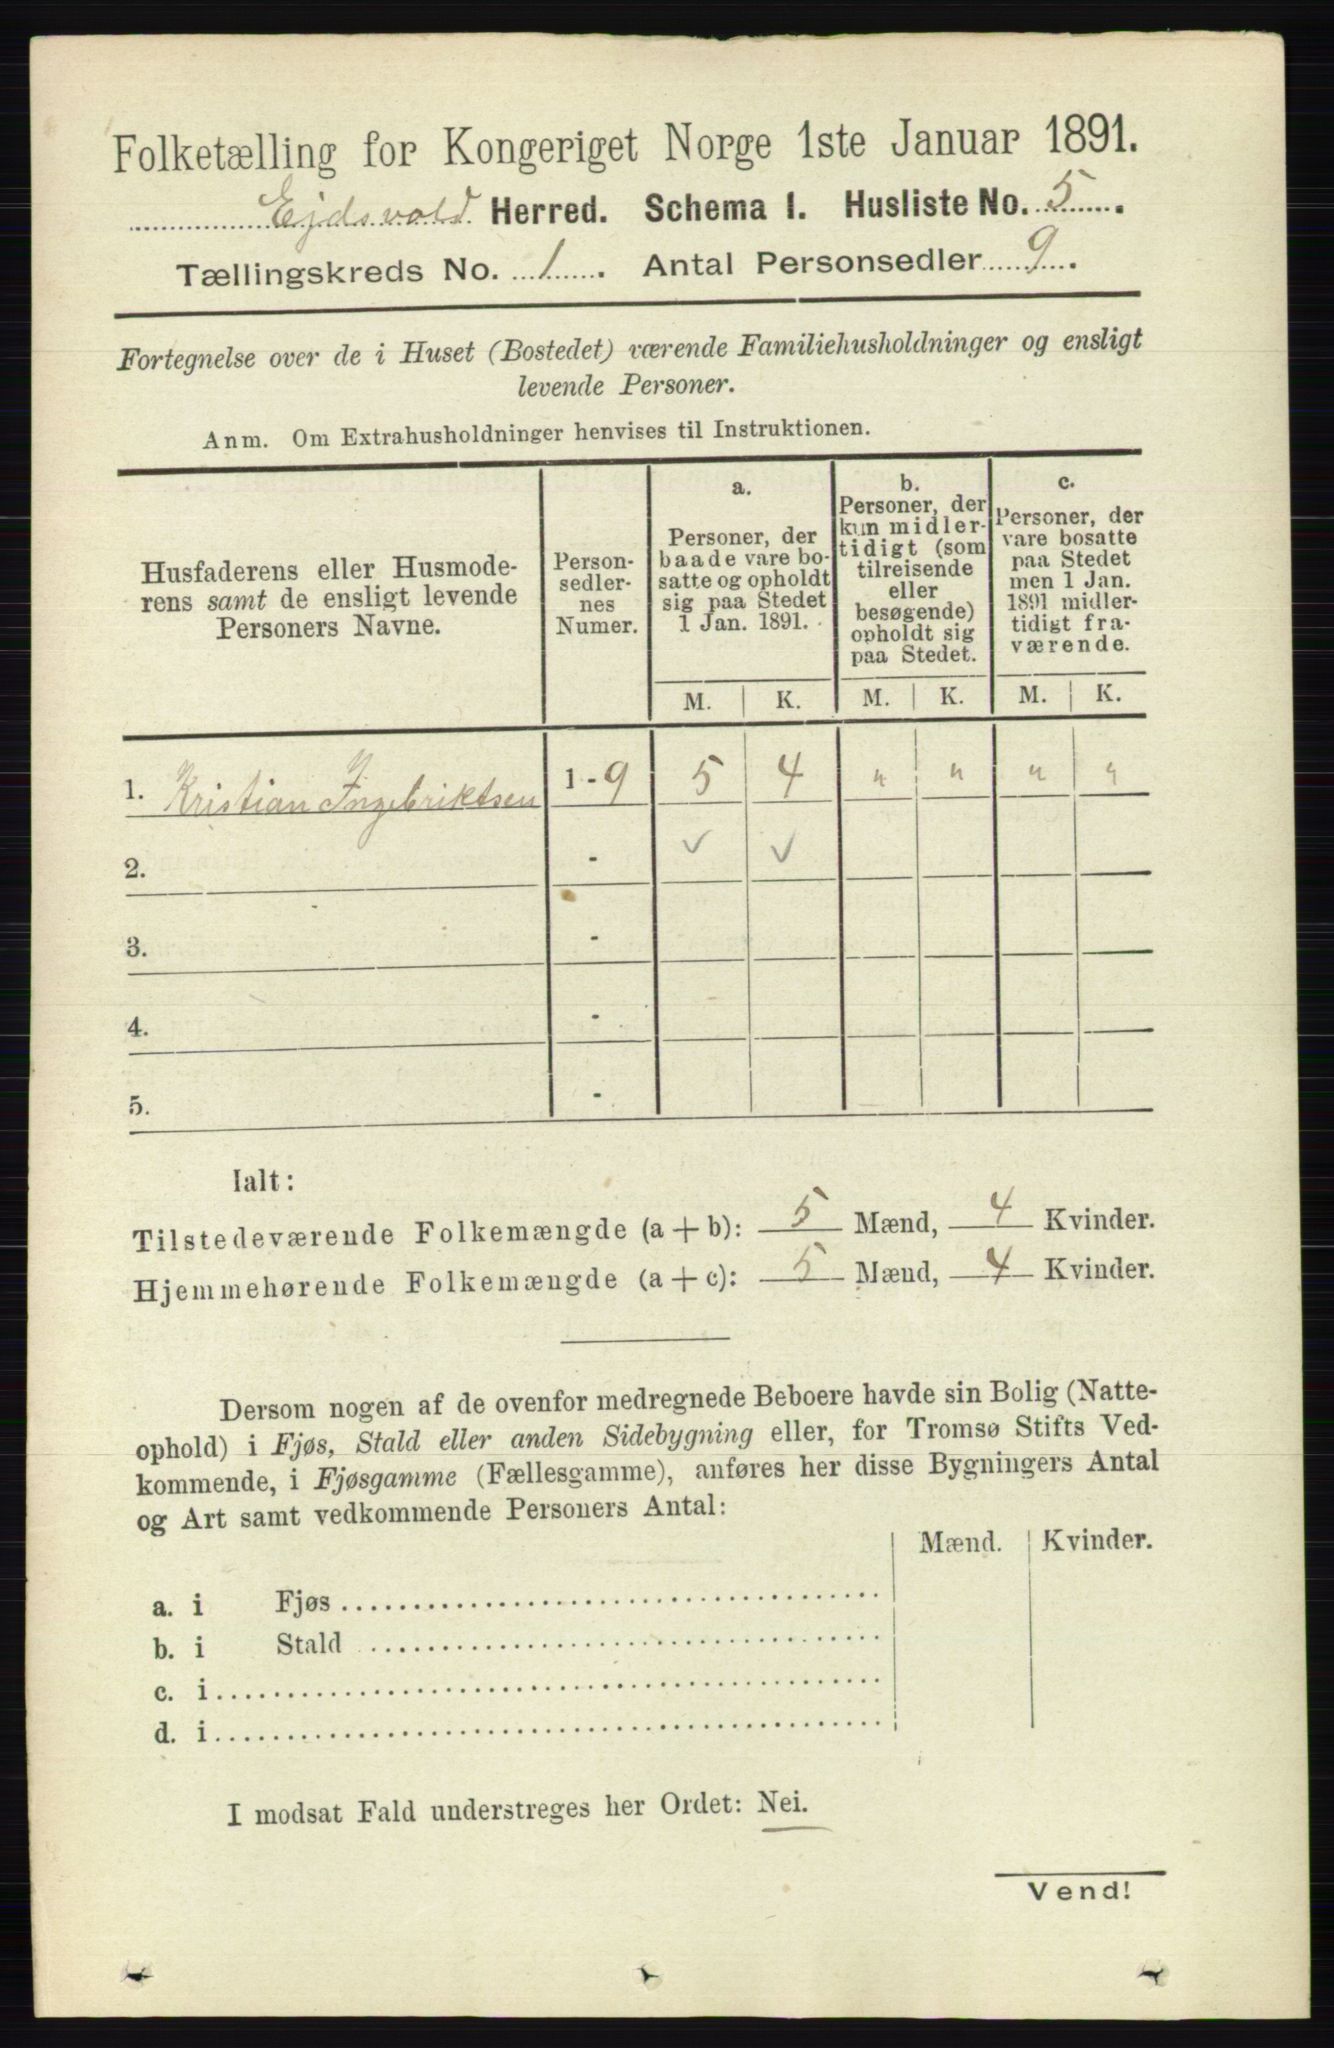 Folketælling for Kongeriget Norge 1ste Januar 1891.
Ejdsvold Herred. Schema I. Husliste No. 5.
Tællingskreds No. 1. Antal Personsedler 9.
Fortegnelse over de i Huset (Bostedet) værende Familiehusholdninger og ensligt
levende Personer.
Anm. Om Extrahusholdninger henvises til Instruktionen.
Husfaderens eller Husmode-
rens samt de ensligt levende
Personers Navne.
Person-
sedler-
nes
Numer.
a.
Personer, der
baade vare bo-
satte og opholdt
sig paa Stedet
1 Jan. 1891.
b.
Personer, der
kun midler-
tidigt (som
tilreisende
eller
besøgende)
opholdt sig
paa Stedet.
c.
Personer, der
vare bosatte
paa Stedet
men 1 Jan.
1891 midler-
tidigt fra-
værende.
M. K. M. K. M. K.
1. Kristian Ingebriktsen 1 - 9 5 4 " " " "
2. - ✓ ✓
3. -
4. -
5. -
Ialt:
Tilstedeværende Folkemængde (a + b): 5 Mænd, 4 Kvinder.
Hjemmehørende Folkemængde (a + c): 5 Mænd, 4 Kvinder.
Dersom nogen af de ovenfor medregnede Beboere havde sin Bolig (Natte-
ophold) i Fjøs, Stald eller anden Sidebygning eller, for Tromsø Stifts Ved-
kommende, i Fjøsgamme (Fællesgamme), anføres her disse Bygningers Antal
og Art samt vedkommende Personers Antal:
Mænd. Kvinder.
a. i Fjøs
b. i Stald
c. i
d. i
I modsat Fald understreges her Ordet: Nei.
Vend!